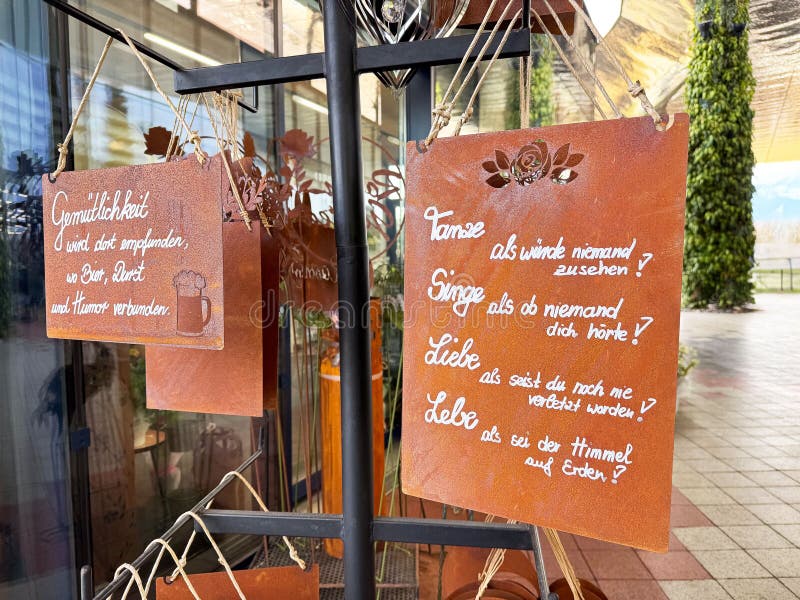 Gemütlichkeit
wird dort empfunden,
wo Bier, Durst
und Humor verbunden.
Tanze
als würde niemand
zusehen!
Singe als ob niemand
dich hörte!
Liebe
als seist du noch nie
verletzt worden!
Lebe
als sei der Himmel
auf Erden!
dreamstime